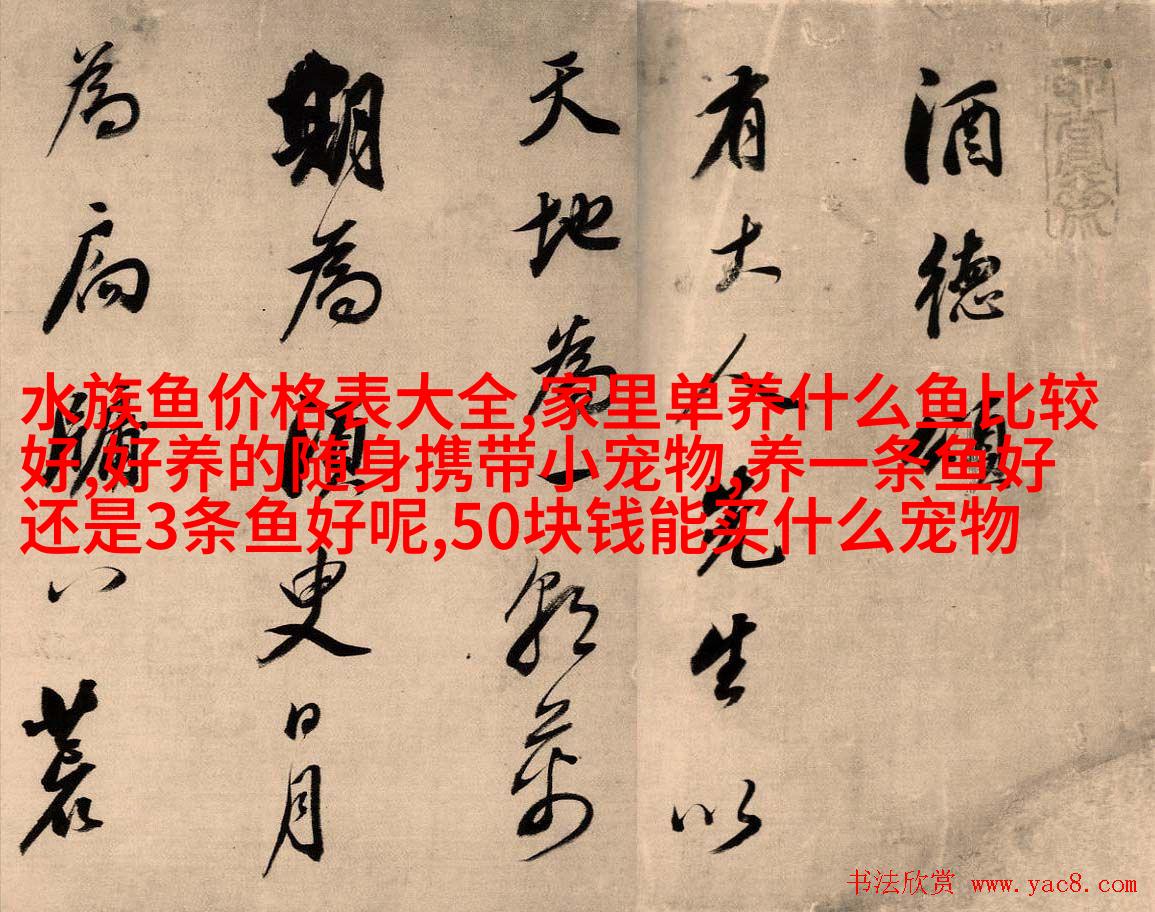 酒德頌
有大人先生以
天地為一朝萬
期為須臾日月
為扃牖八荒
水族鱼价格表大全,家里单养什么鱼比较
好,好养的随身携带小宠物,养一条鱼好
还是3条鱼好呢,50块钱能买什么宠物
书法欣赏 www.yac8.com